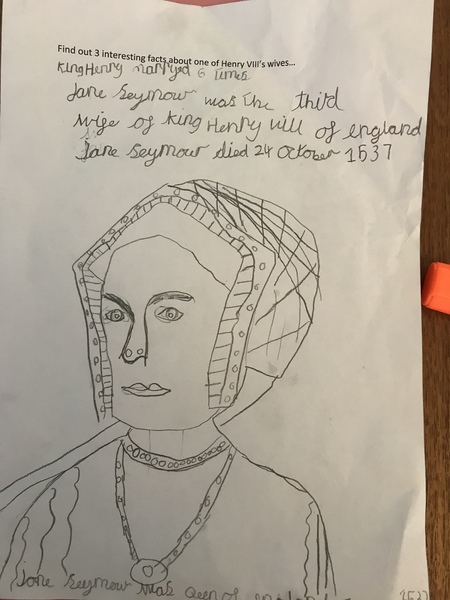 Find out 3 interesting facts about one of Henry VIII's wives...
King Henry marryed 6 times
Jane Seymour was the third
wife of King Henry Vlll of england
Jane Seymour died 24 October 1537
Jane Seymour was Queen of england